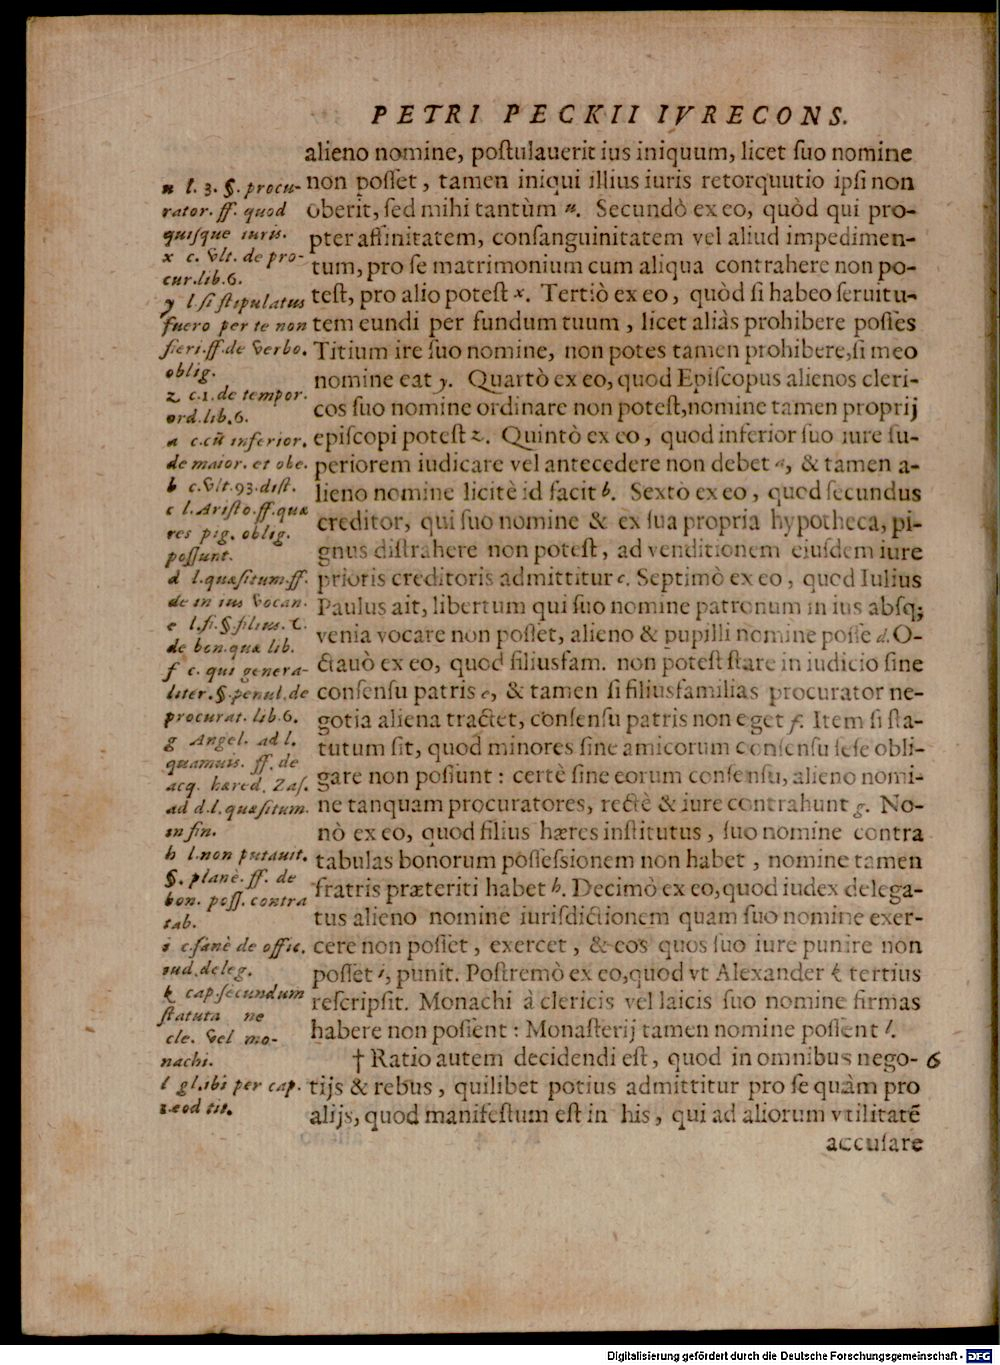 PETRI PECKII IVRECONS.
alieno nomine, poſtulauerit ius iniquum, licet ſuo nomine
non poſſet, tamen iniqui illius iuris retorquutio ipſi non
oberit, ſed mihi tantùm u. Secundò ex eo, quòd qui pro-
pter affinitatem, conſanguinitatem vel aliud impedimen-
tum, pro ſe matrimonium cum aliqua contrahere non po-
teſt, pro alio poteſt x. Tertiò ex eo, quòd ſi habeo ſeruitu-
tem eundi per fundum tuum, licet aliàs prohibere poſſes
Titium ire ſuo nomine, non potes tamen prohibere, ſi meo
nomine eat y. Quartò ex eo, quod Epiſcopus alienos cleri-
cos ſuo nomine ordinare non poteſt, nomine tamen proprij
epiſcopi poteſt z. Quintò ex eo, quod inferior ſuo iure ſu-
periorem iudicare vel antecedere non debet a, & tamen a-
lieno nomine licitè id facit b. Sextò ex eo, quod ſecundus
creditor, qui ſuo nomine & ex ſua propria hypotheca, pi-
gnus diſtrahere non poteſt, ad venditionem eiuſdem iure
prioris creditoris admittitur c. Septimò ex eo, quod Iulius
Paulus ait, libertum qui ſuo nomine patronum in ius abſq;
venia vocare non poſſet, alieno & pupilli nomine poſſe d. O-
ctauò ex eo, quod filiusfam. non poteſt ſtare in iudicio ſine
conſenſu patris e, & tamen ſi filiusfamilias procurator ne-
gotia aliena tractet, conſenſu patris non eget f. Item ſi ſta-
tutum ſit, quod minores ſine amicorum conſenſu ſeſe obli-
gare non poſſunt: certè ſine eorum conſenſu, alieno nomi-
ne tanquam procuratores, rectè & iure contrahunt g. No-
nò ex eo, quod filius hæres inſtitutus, ſuo nomine contra
tabulas bonorum poſſeſsionem non habet, nomine tamen
fratris præteriti habet h. Decimò ex eo, quod iudex delega-
tus alieno nomine iuriſdictionem quam ſuo nomine exer-
cere non poſſet, exercet, & eos quos ſuo iure punire non
poſſet i, punit. Poſtremò ex eo, quod vt Alexander k tertius
reſcripſit. Monachi à clericis vel laicis ſuo nomine firmas
habere non poſſent: Monaſterij tamen nomine poſſent l.
† Ratio autem decidendi eſt, quod in omnibus nego- 6
tijs & rebus, quilibet potius admittitur pro ſe quàm pro
alijs, quod manifeſtum eſt in his, qui ad aliorum vtilitatē
accuſare
u l. 3. §. procu-
rator. ff. quod
quiſque iuris.
x c. vlt. de pro-
cur. lib. 6.
y l. ſi ſtipulatus
fuero per te non
fieri. ff. de verbo.
oblig.
z c. 1. de tempor.
ord. lib. 6.
a c. cū inferior.
de maior. et obe.
b c. vlt. 93. diſt.
c l. Ariſto. ff. quæ
res pig. oblig.
poſſunt.
d l. quæſitum. ff.
de in ius vocan.
e l. fi. § filius. C.
de bon. quæ lib.
f c. qui genera-
liter. §. penul. de
procurat. lib. 6.
g Angel. ad l.
quamuis. ff. de
acq. hæred. Zaſ.
ad d. l. quæſitum.
in fin.
h l. non putauit.
§. planè. ff. de
bon. poſſ. contra
tab.
i c. ſanè de offic.
iud. deleg.
k cap. ſecundum
ſtatuta ne
cle. vel mo-
nachi.
l gl. ibi per cap.
1. eod tit.
Digitalisierung gefördert durch die Deutsche Forschungsgemeinschaft - DFG